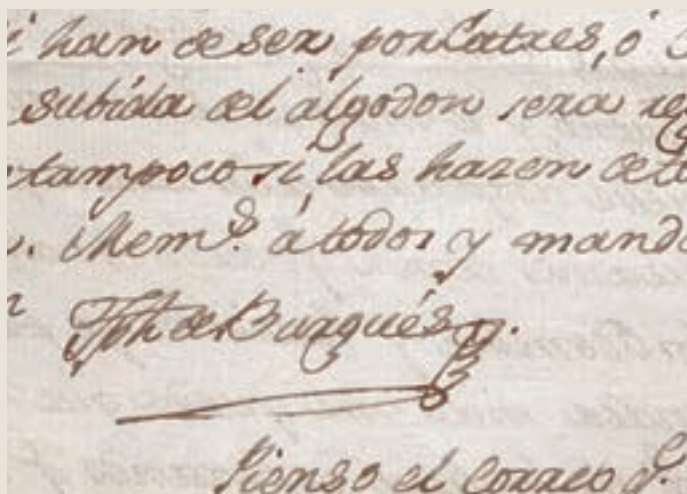 i han de ser por Catres, ó
subida del algodon sera
tampoco si las hazen de
Mem.s á todos y mand
Jph de Burgués
Pienso el Correo q.e